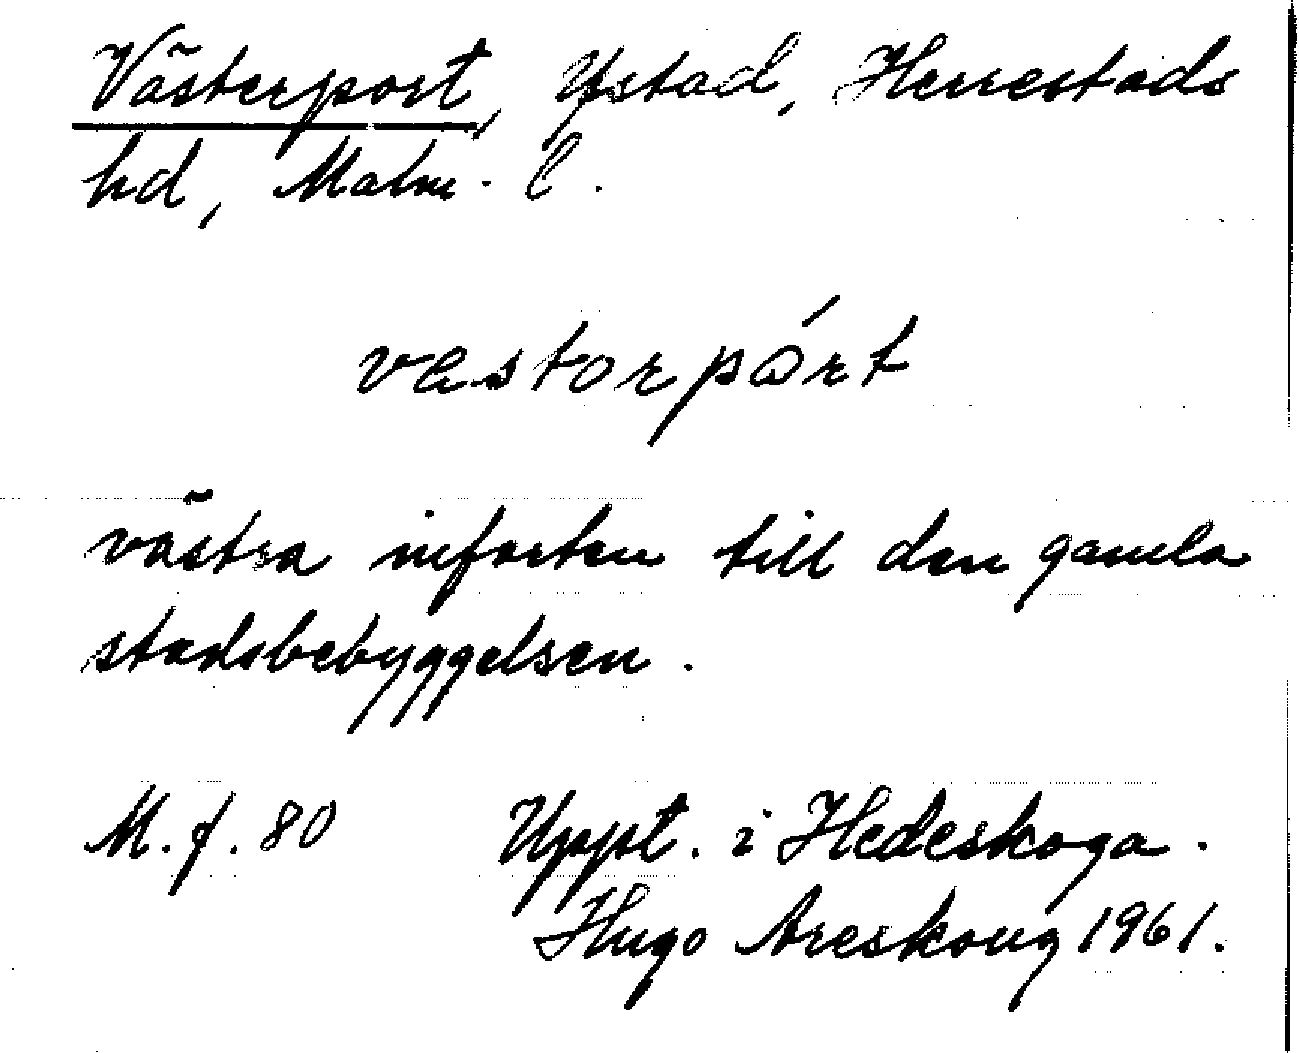 Västerport, Ystad, Herrestads
hd, Malm. l.
vastorpórt
västra infarten till den gamla
stadsbebyggelsen.
M. f. 80 Uppt. i Hedeskoga.
Hugo Areskoug 1961.